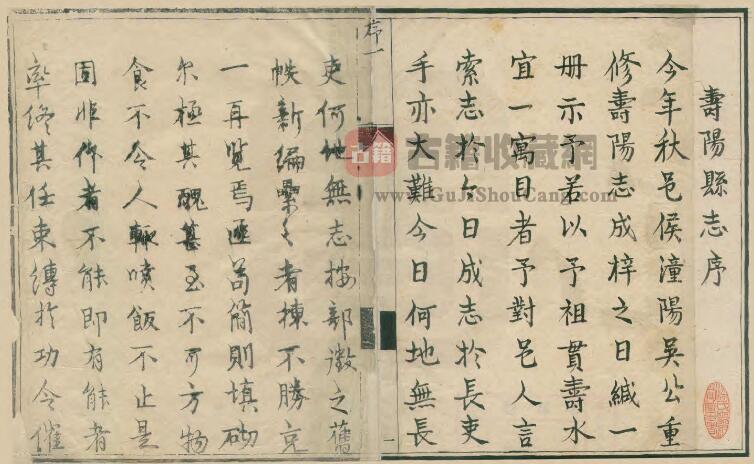 壽陽縣志序
今年秋邑侯潼陽吳公重
修壽陽志成梓之日緘一
冊示予若以予祖貫壽水
宜一寓目者予對邑人言
索志於今日成志於長吏
手亦大難今日何地無長
序一
一
吏何地無志按部徵之舊
帙新編纍纍者棟不勝充
一再覽焉匪苟簡則填砌
尔極其醜甚至不可方物
食不令人輒噴飯不止是
固非作者不能即有能者
率終其任束縛於功令催
古籍
古籍收藏網
www.GuJiShouCang.com